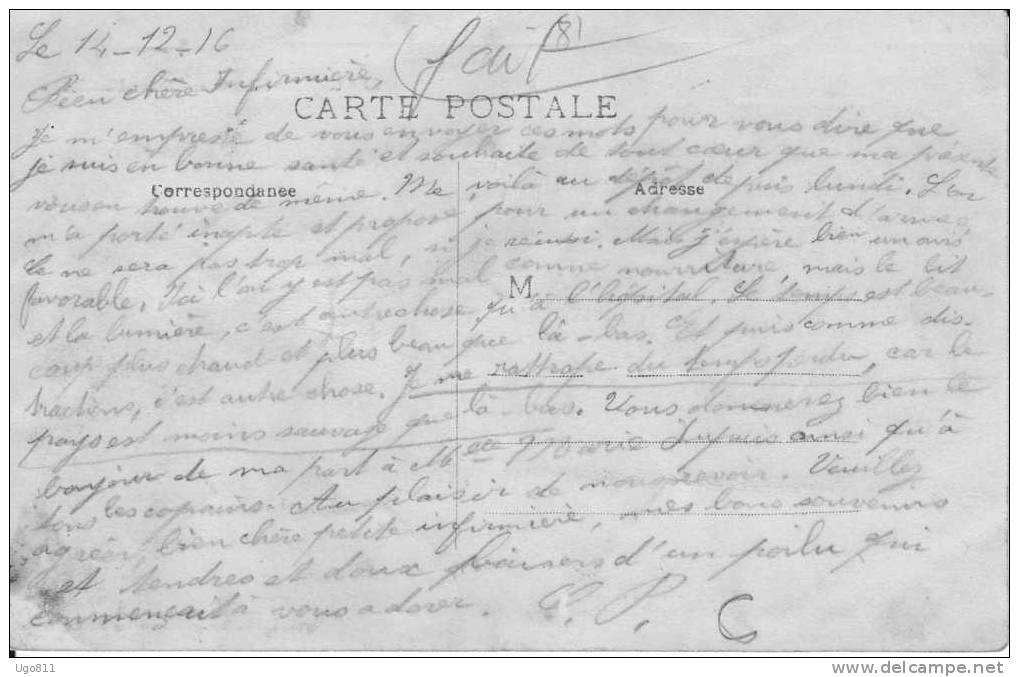 Le 14-12-16
(fait (8)
Bien chère Infirmière,
CARTE POSTALE
Je m'empresse de vous envoyer ces mots pour vous dire que
je suis en bonne santé et souhaite de tout cœur que ma présente
Correspondance Adresse
vous en trouve de même. Me voilà au dépôt depuis lundi. L'on
m'a porté inapte et proposé pour un changement d'armes
Ce ne sera pas trop mal, si je réussi. Mais j'espère bien un avis
favorable. Ici l'on y est pas mal comme nourriture, mais le lit
M.
et la lumière, c'est autre chose qu'à l'hôpital. Le temps est beau-
coup plus chaud et plus beau que là-bas. Et puis comme dis-
tractions, c'est autre chose. Je me rattrape du temps perdu, car le
pays est moins sauvage que là-bas. Vous donnerez bien le
bonjour de ma part à Melle Marie ainsi qu'à
tous les copains. Au plaisir de nous revoir. Veuillez
agréer, bien chère petite infirmière, mes bons souvenirs
et tendres et doux baisers d'un poilu qui
commençait à vous adorer. C. P.
C
Ugo811
www.delcampe.net